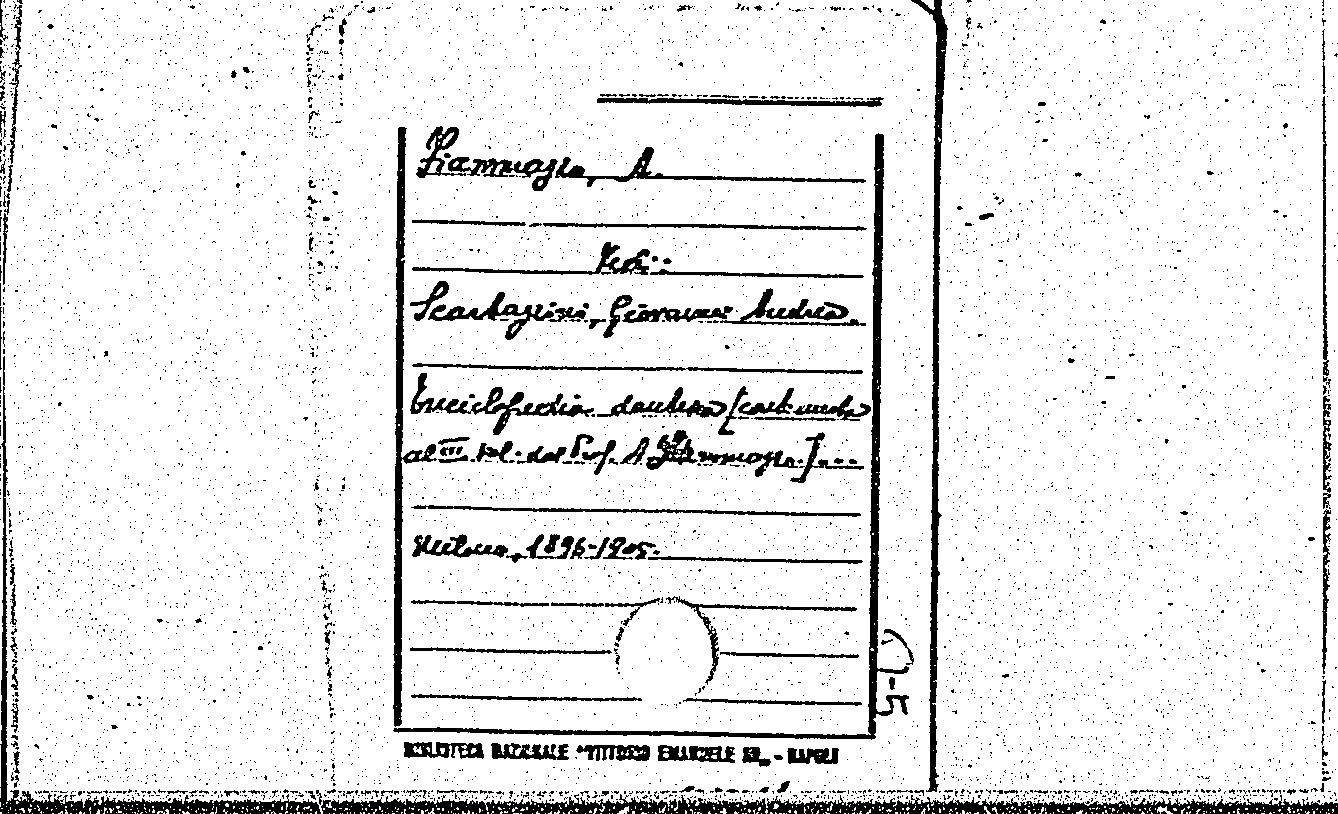 Fiammazzo, A.
Vedi:
Scartazzini, Giovanni Andrea.
Enciclopedia dantesca [continuata
al III vol. dal Prof. A. Fiammazzo.]...
Milano, 1896-1905.
BIBLIOTECA NAZIONALE "VITTORIO EMANUELE III„ - NAPOLI